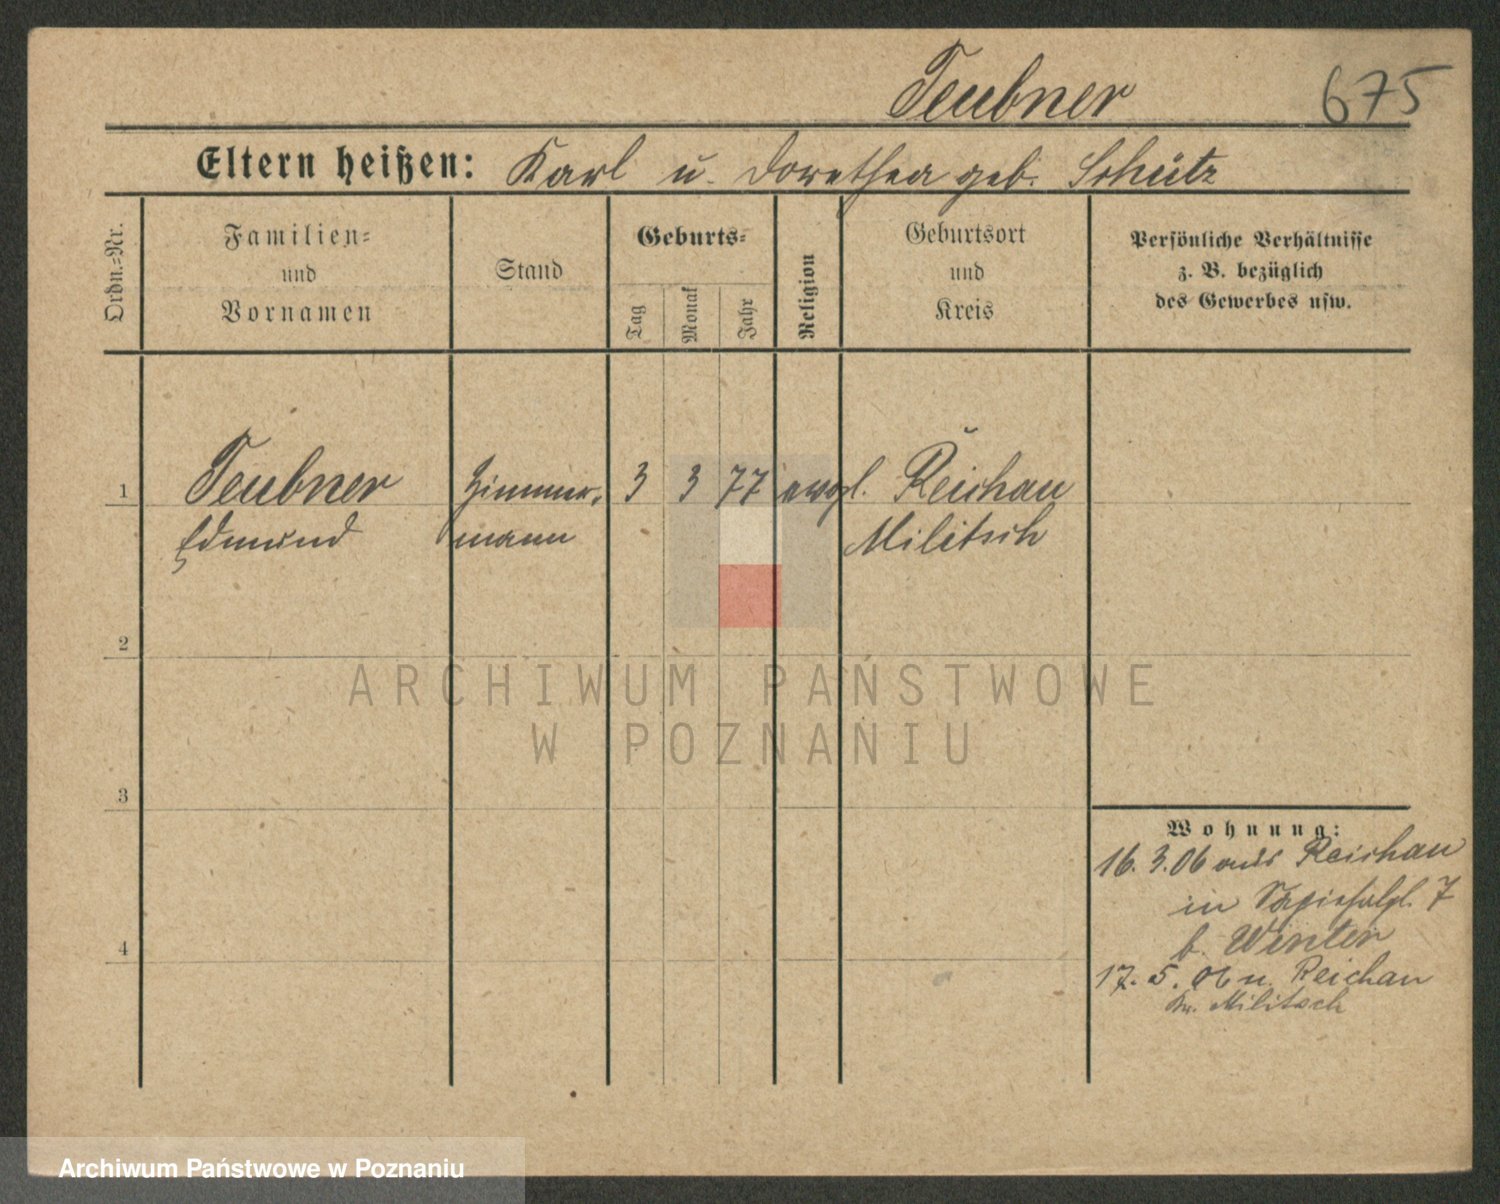 Teubner 675
Eltern heißen: Karl u. Dorothea geb. Schütz
Ordn.-Nr.
Familien-
und
Vornamen
Stand
Geburts-
Tag
Monat
Jahr
Religion
Geburtsort
und
Kreis
Persönliche Verhältnisse
z. B. bezüglich
des Gewerbes usw.
1 Teubner Zimmer- 3 3 77 evgl. Reichau
Edmund mann Militsch
2
3
4
Wohnung:
16. 3. 06 aus Reichau
in 7
b. Winter
17. 5. 06 n. Reichau
Kr. Militsch
ARCHIWUM PAŃSTWOWE
W POZNANIU
Archiwum Państwowe w Poznaniu